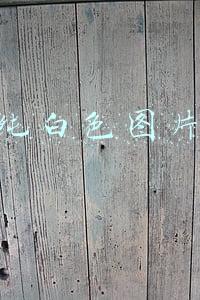 纯白色图片